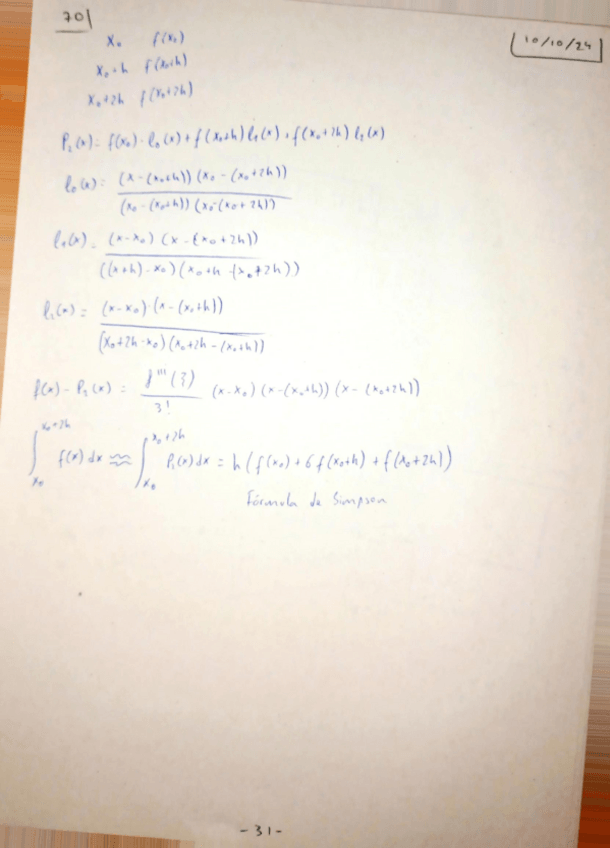 70|
10/10/24
x₀ f(x₀)
x₀+h f(x₀+h)
x₀+2h f(x₀+2h)
P₂(x) = f(x₀)·l₀(x) + f(x₀+h) l₁(x) + f(x₀+2h) l₂(x)
l₀(x) = (x-(x₀+h)) (x₀-(x₀+2h)) / (x₀-(x₀+h)) (x₀-(x₀+2h))
l₁(x) = (x-x₀) (x-(x₀+2h)) / ((x+h)-x₀) (x₀+h-(x₀+2h))
l₂(x) = (x-x₀)·(x-(x₀+h)) / (x₀+2h-x₀) (x₀+2h-(x₀+h))
f(x) - P₂(x) = f'''(ξ) / 3! (x-x₀) (x-(x₀+h)) (x-(x₀+2h))
∫ₓ₀^x₀+2h f(x) dx ≈ ∫ₓ₀^x₀+2h P₂(x) dx = h (f(x₀) + 6 f(x₀+h) + f(x₀+2h))
Fórmula de Simpson
-31-